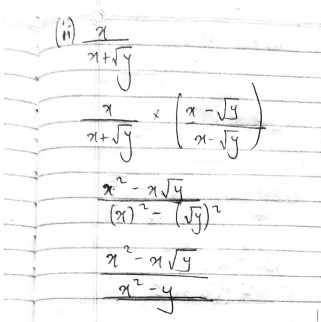 (ii) x / (x+√y)
x / (x+√y) × ( (x - √y) / (x - √y) )
(x² - x√y) / ((x)² - (√y)²)
(x² - x√y) / (x² - y)